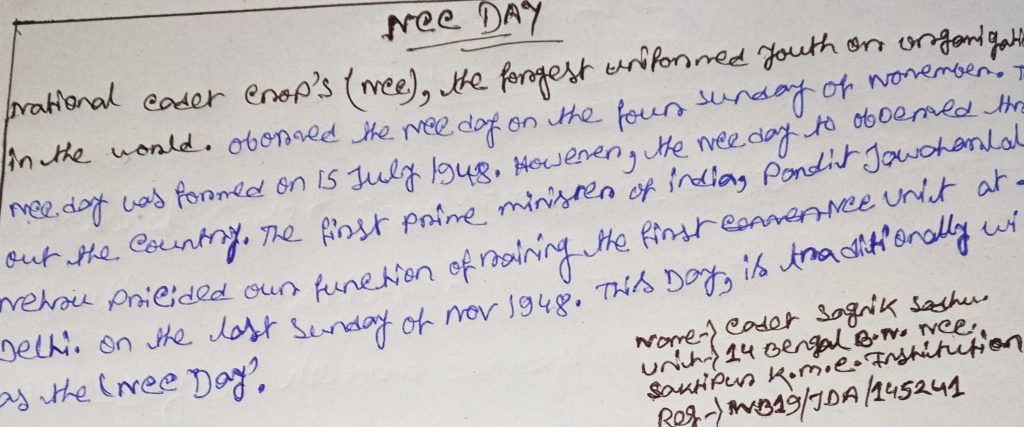 NCC DAY
National cadet Crop's (NCC), the largest uniformed youth on organigati
in the world. observed the NCC day on the four sunday of november. T
NCC day was formed on 15 July 1948. However, the NCC day to observed thr
out the Country. The first prime minister of india, Pandit Jawaharlal
nehrou Pricided our function of raining the first Unit at
Delhi. on the last Sunday of nov 1948. This Day, is traditionally wi
as the 'NCC Day'.
Name-} cadet Sagnik
Unit-} 14 Bengal B.N. NCC.
Saktipur K.M.C. Institution
Reg-} WB19/JDA/145241